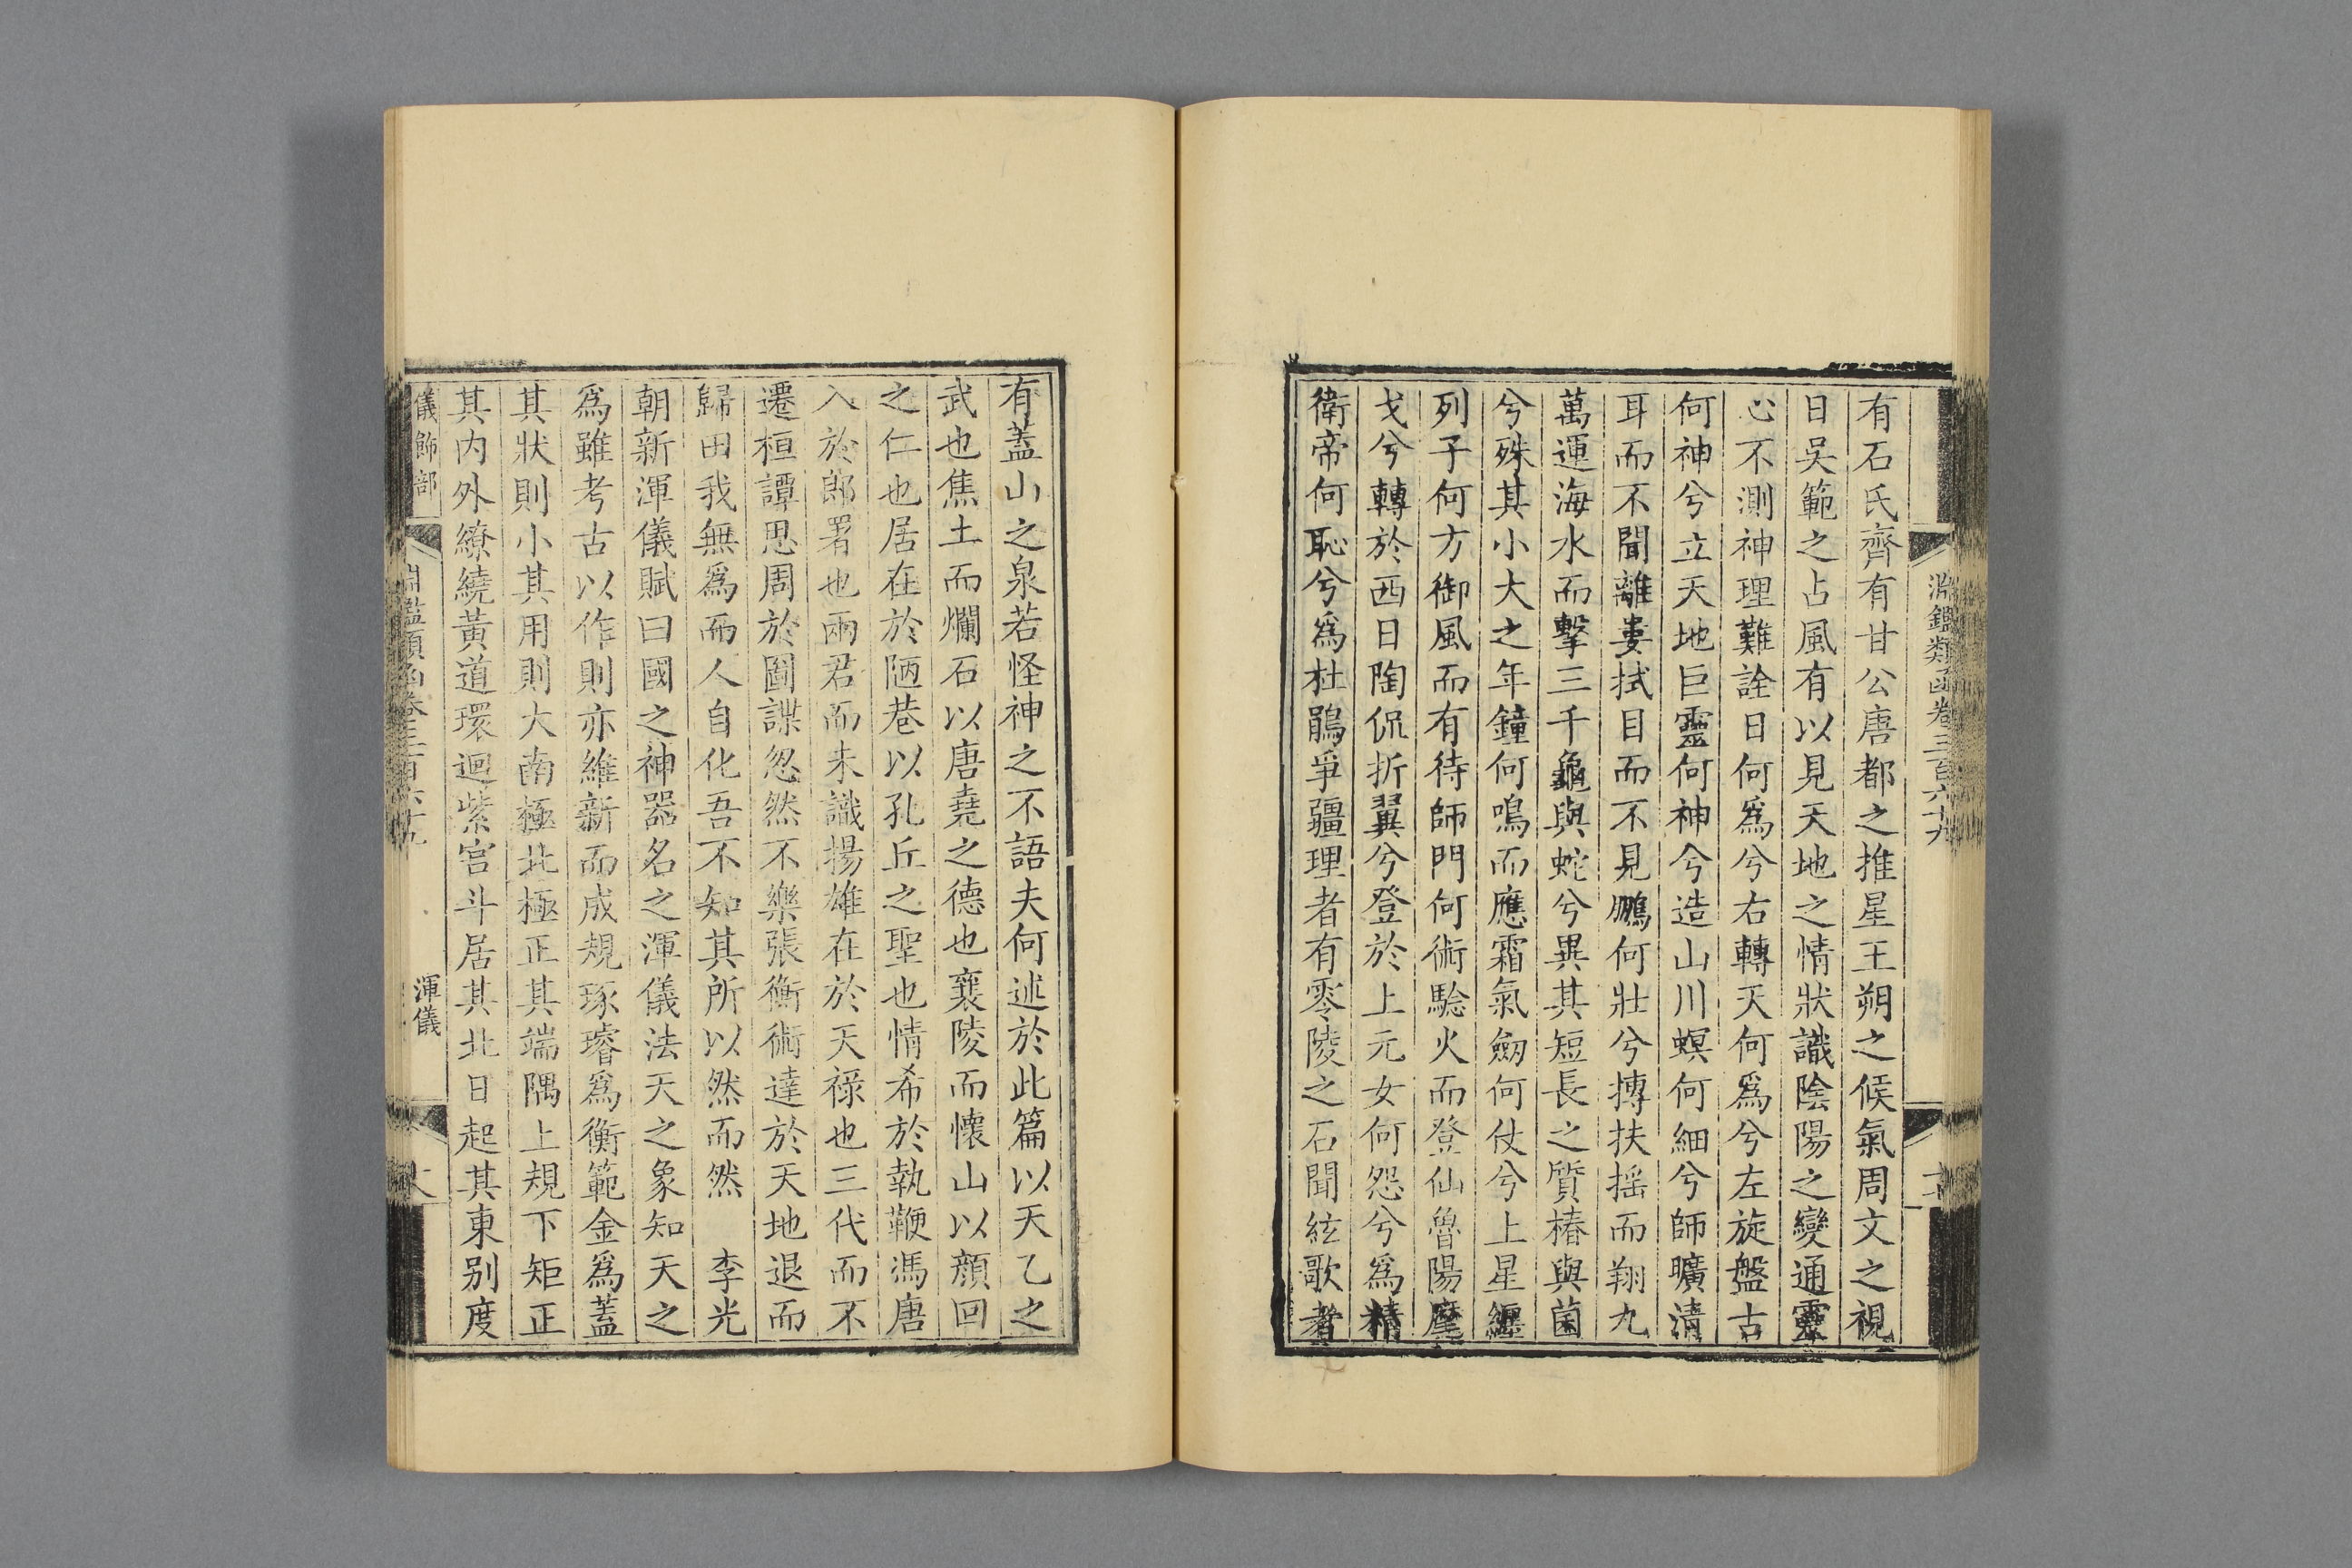 淵鑑類函卷三百六十九
有石氏齊有甘公唐都之推星王朔之候氣周文之視
日吳範之占風有以見天地之情狀識陰陽之變通靈
心不測神理難詮日何爲兮右轉天何爲兮左旋盤古
何神兮立天地巨靈何神兮造山川螟何細兮師曠清
耳而不聞離婁拭目而不見鵬何壯兮摶扶摇而翔九
萬運海水而擊三千龜與蛇兮異其短長之質椿與菌
兮殊其小大之年鐘何鳴而應霜氣劒何仗兮上星纒
列子何方御風而有待師門何術騐火而登仙魯陽麾
戈兮轉於西日陶侃折翼兮登於上元女何怨兮爲精
衛帝何恥兮爲杜鵑爭疆理者有零陵之石聞絃歌者
有蓋山之泉若怪神之不語夫何述於此篇以天乙之
武也焦土而爛石以唐堯之德也襄陵而懷山以顔回
之仁也居在於陋巷以孔丘之聖也情希於執鞭馮唐
入於郎署也兩君而未識揚雄在於天祿也三代而不
遷桓譚思周於圖諜忽然不樂張衡術達於天地退而
歸田我無爲而人自化吾不知其所以然而然　李光
朝新渾儀賦曰國之神器名之渾儀法天之象知天之
爲雖考古以作則亦維新而成規琢璿爲衡範金爲蓋
其狀則小其用則大南極北極正其端隅上規下矩正
其内外繚繞黃道環迴紫宫斗居其北日起其東别度
儀飾部
淵鑑類函卷三百六十九
渾儀